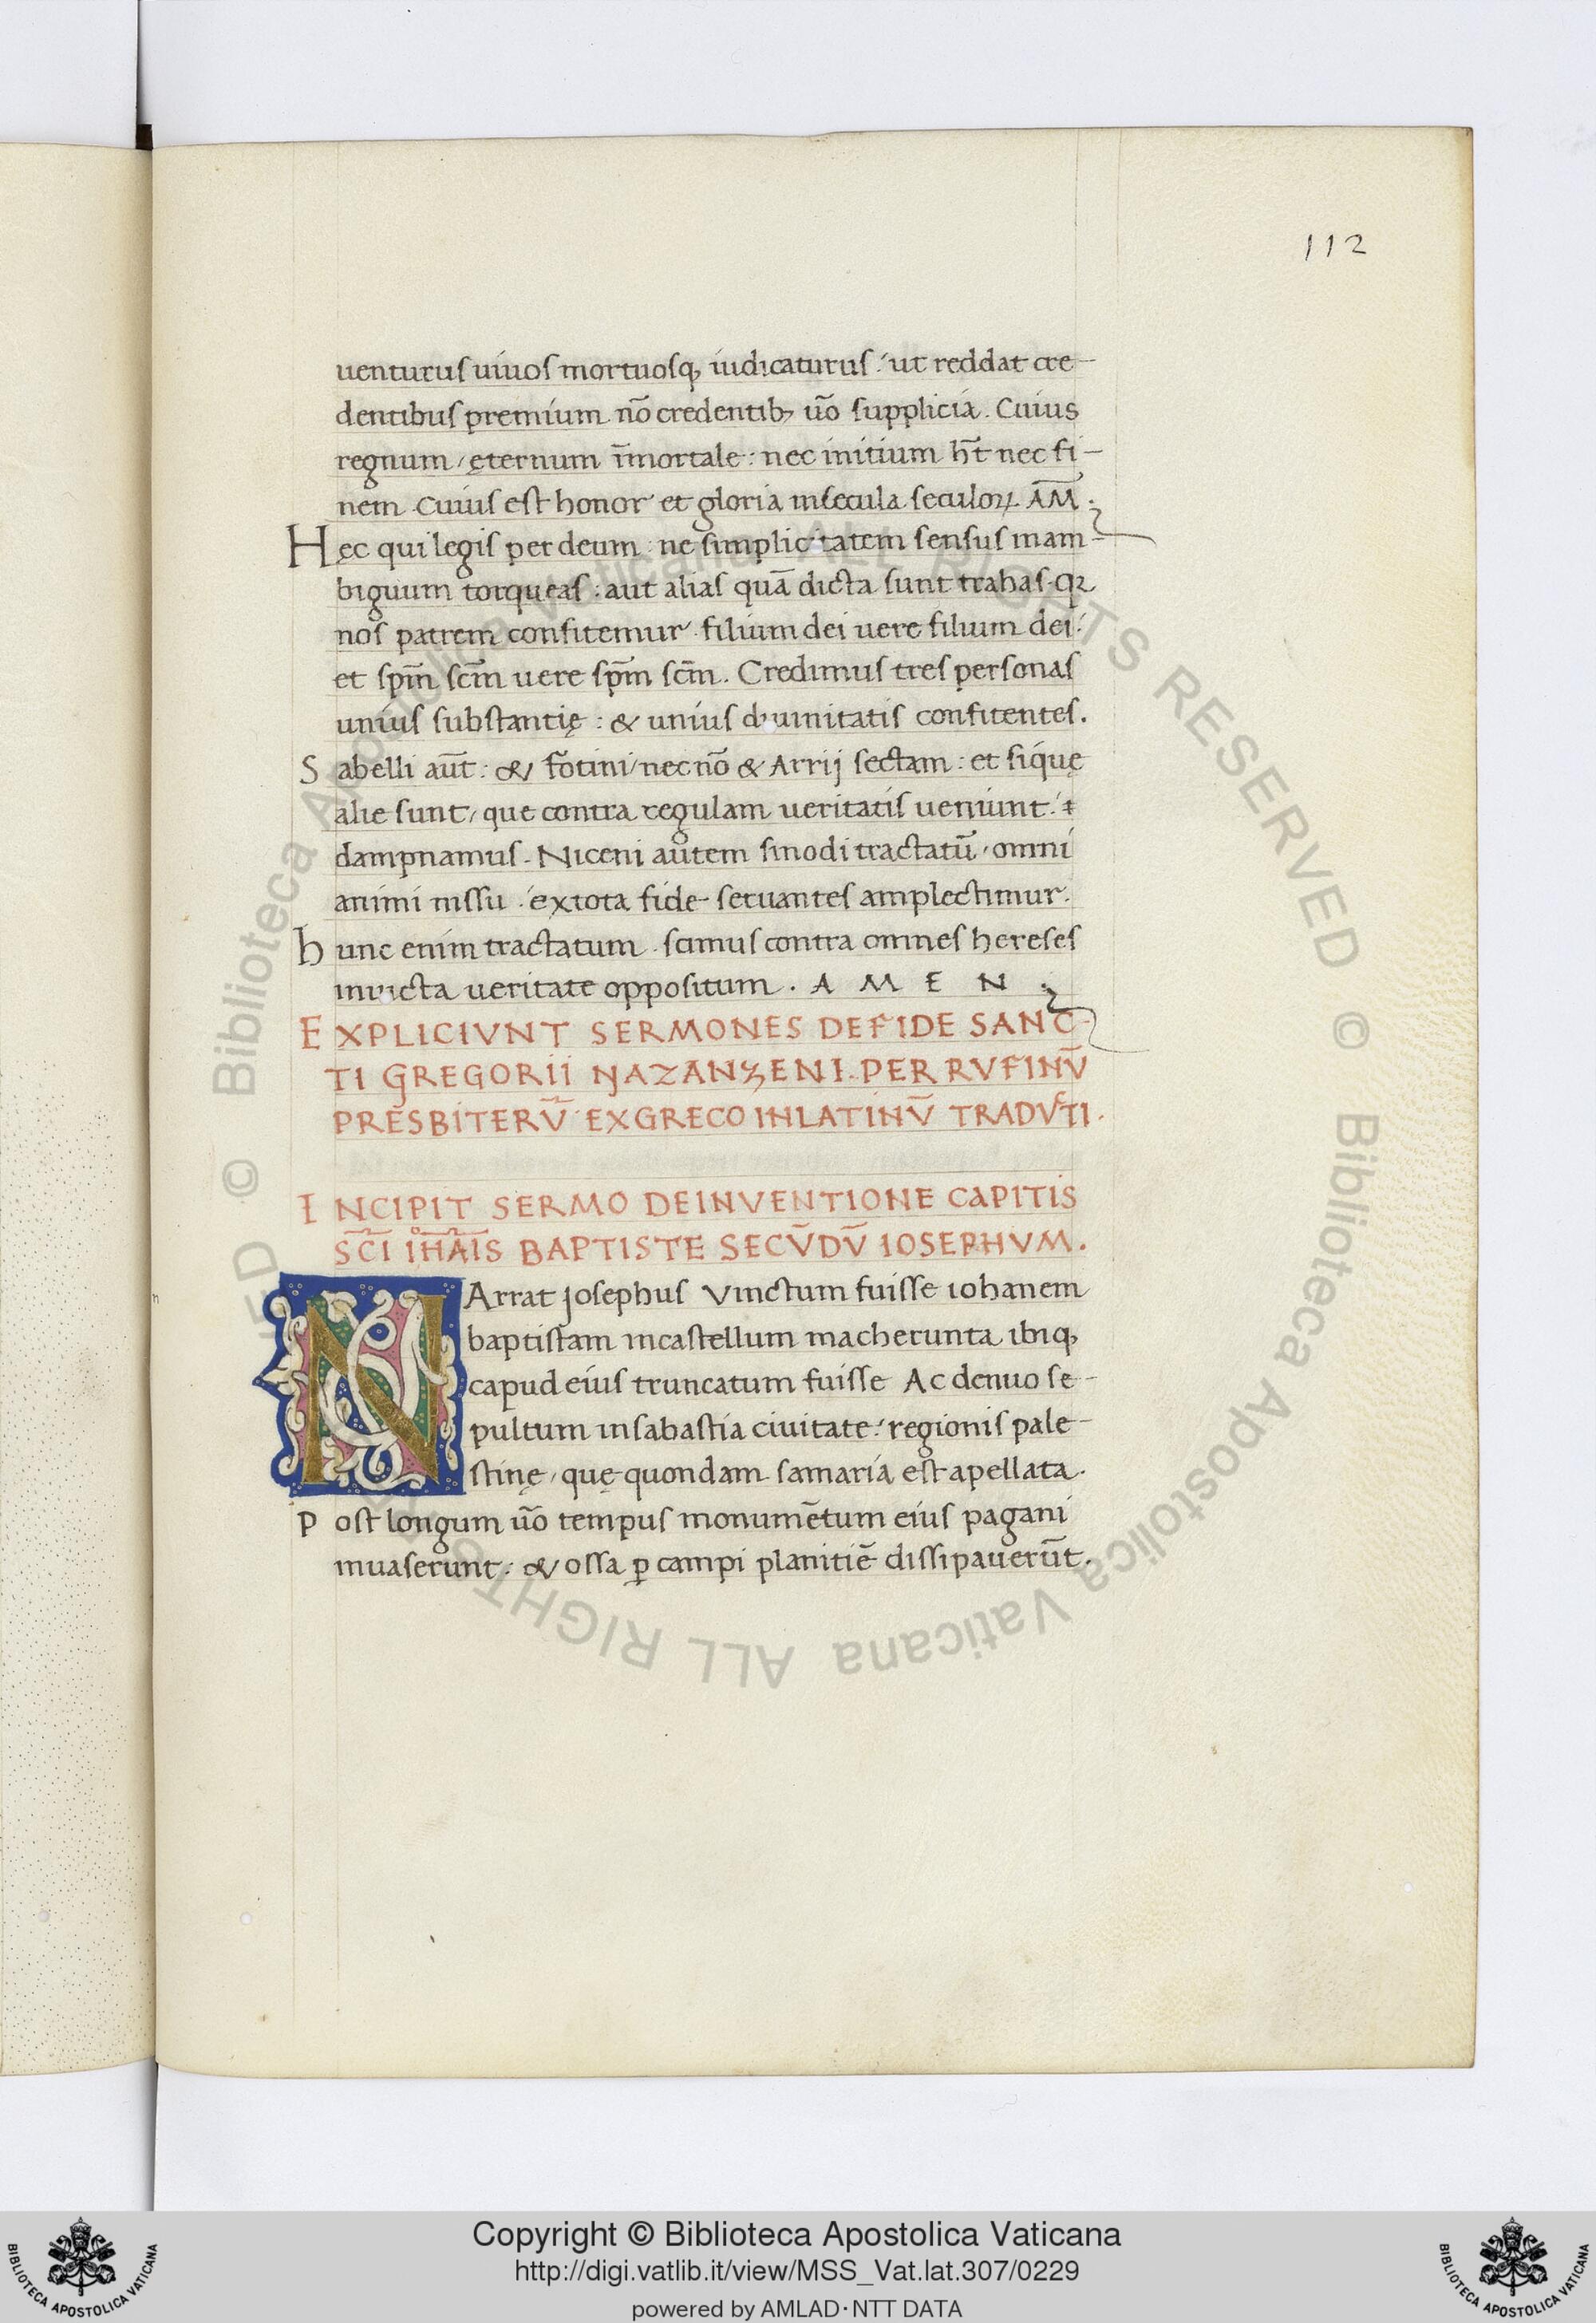 112
uenturus uiuos mortuosq, iudicaturus: ut reddat cre-
dentibus premium nō credentib; uo͞ supplicia. Cuius
regnum, ęternum īmortale: nec initium ht̄ nec fi-
nem. Cuius est honor et gloria insecula seculoꝝ. AM̄.
Hec qui legis per deum: ne simplicitatem sensus in am-
biguum torqueas: aut alias quā dicta sunt trahas. qꝛ
nos patrem confitemur. filium dei uere filium dei:
et sp̄m sc̄m uere sp̄m sc̄m. Credimus tres personas
unius substantię: & unius diuinitatis confitentes.
Sabelli aūt: & fōtini, nec nō & Arrij sectam: et siquę
alie sunt, que contra regulam ueritatis ueniunt:
dampnamus. Niceni autem sinodi tractatū, omni
animi nissu: ex tota fide seruantes amplectimur.
hunc enim tractatum. scimus contra omnes hereses
inuicta ueritate oppositum. A M E N
EXPLICIVNT SERMONES DE FIDE SANC-
TI GREGORII NAZANZENI. PER RVFINV̄
PRESBITERV̄ EX GRECO IN LATINV̄ TRADVCTI.
INCIPIT SERMO DE INVENTIONE CAPITIS
SC̄I IHA̅IS BAPTISTE SECV̄DV̄ IOSEPHVM.
NArrat Josephus Vinctum fuisse iohanem
baptistam in castellum macherunta ibiq,
capud eius truncatum fuisse Ac denuo se-
pultum in sabastia ciuitate: regionis pale-
stinę, quę quondam samaria est apellata.
Post longum uo͞ tempus monumētum eius pagani
inuaserunt: & ossa ꝑ campi planitiē dissipauerūt.
© Biblioteca Apostolica Vaticana ALL RIGHTS RESERVED © Biblioteca Apostolica Vaticana ALL RIGHTS RESERVED
Copyright © Biblioteca Apostolica Vaticana
http://digi.vatlib.it/view/MSS_Vat.lat.307/0229
powered by AMLAD·NTT DATA
BIBLIOTECA APOSTOLICA VATICANA
BIBLIOTECA APOSTOLICA VATICANA